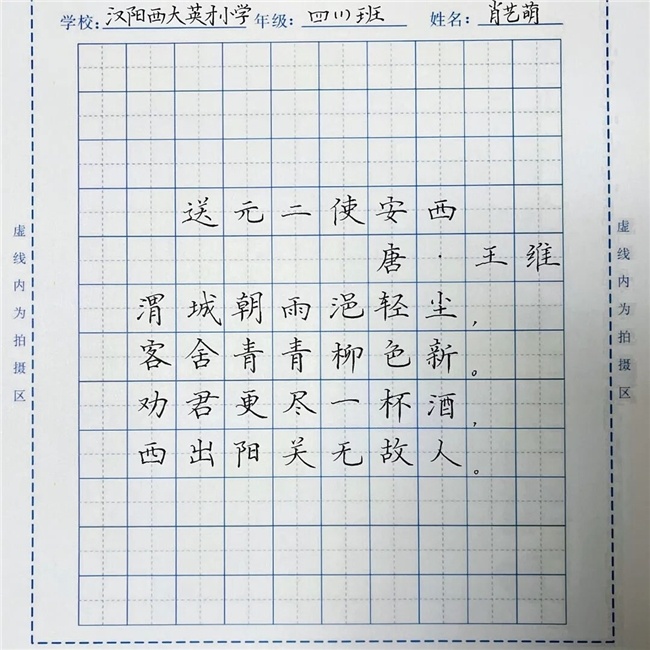 学校: 汉阳西大英才小学 年级: 四(1)班 姓名: 肖艺萌
送元二使安西
唐·王维
渭城朝雨浥轻尘,
客舍青青柳色新。
劝君更尽一杯酒,
西出阳关无故人。
虚线内为拍摄区
虚线内为拍摄区